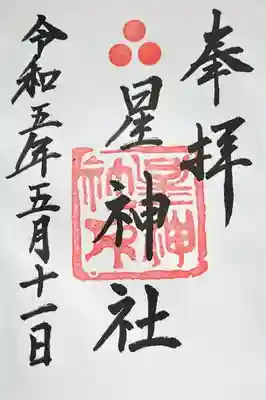 奉拝
星神社
星神社
令和五年五月十一日